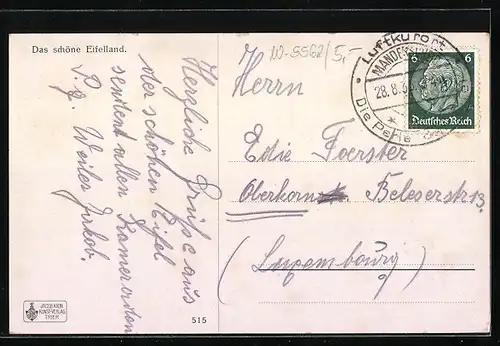 Das schöne Eifelland.
Herzliche Grüße aus
der schönen Eifel
sendet allen Kameraden
S. g. Weiler Jakob.
W-5562/5,-
Luftkurort
MANDERSCHEID
28.8.3
Die Perle
6 6
Deutsches Reich
Herrn
Edie Foerster
Oberkorn Beleserstr 13
(Luxembourg)
JACOB KOCH
KUNST-VERLAG
TRIER
515